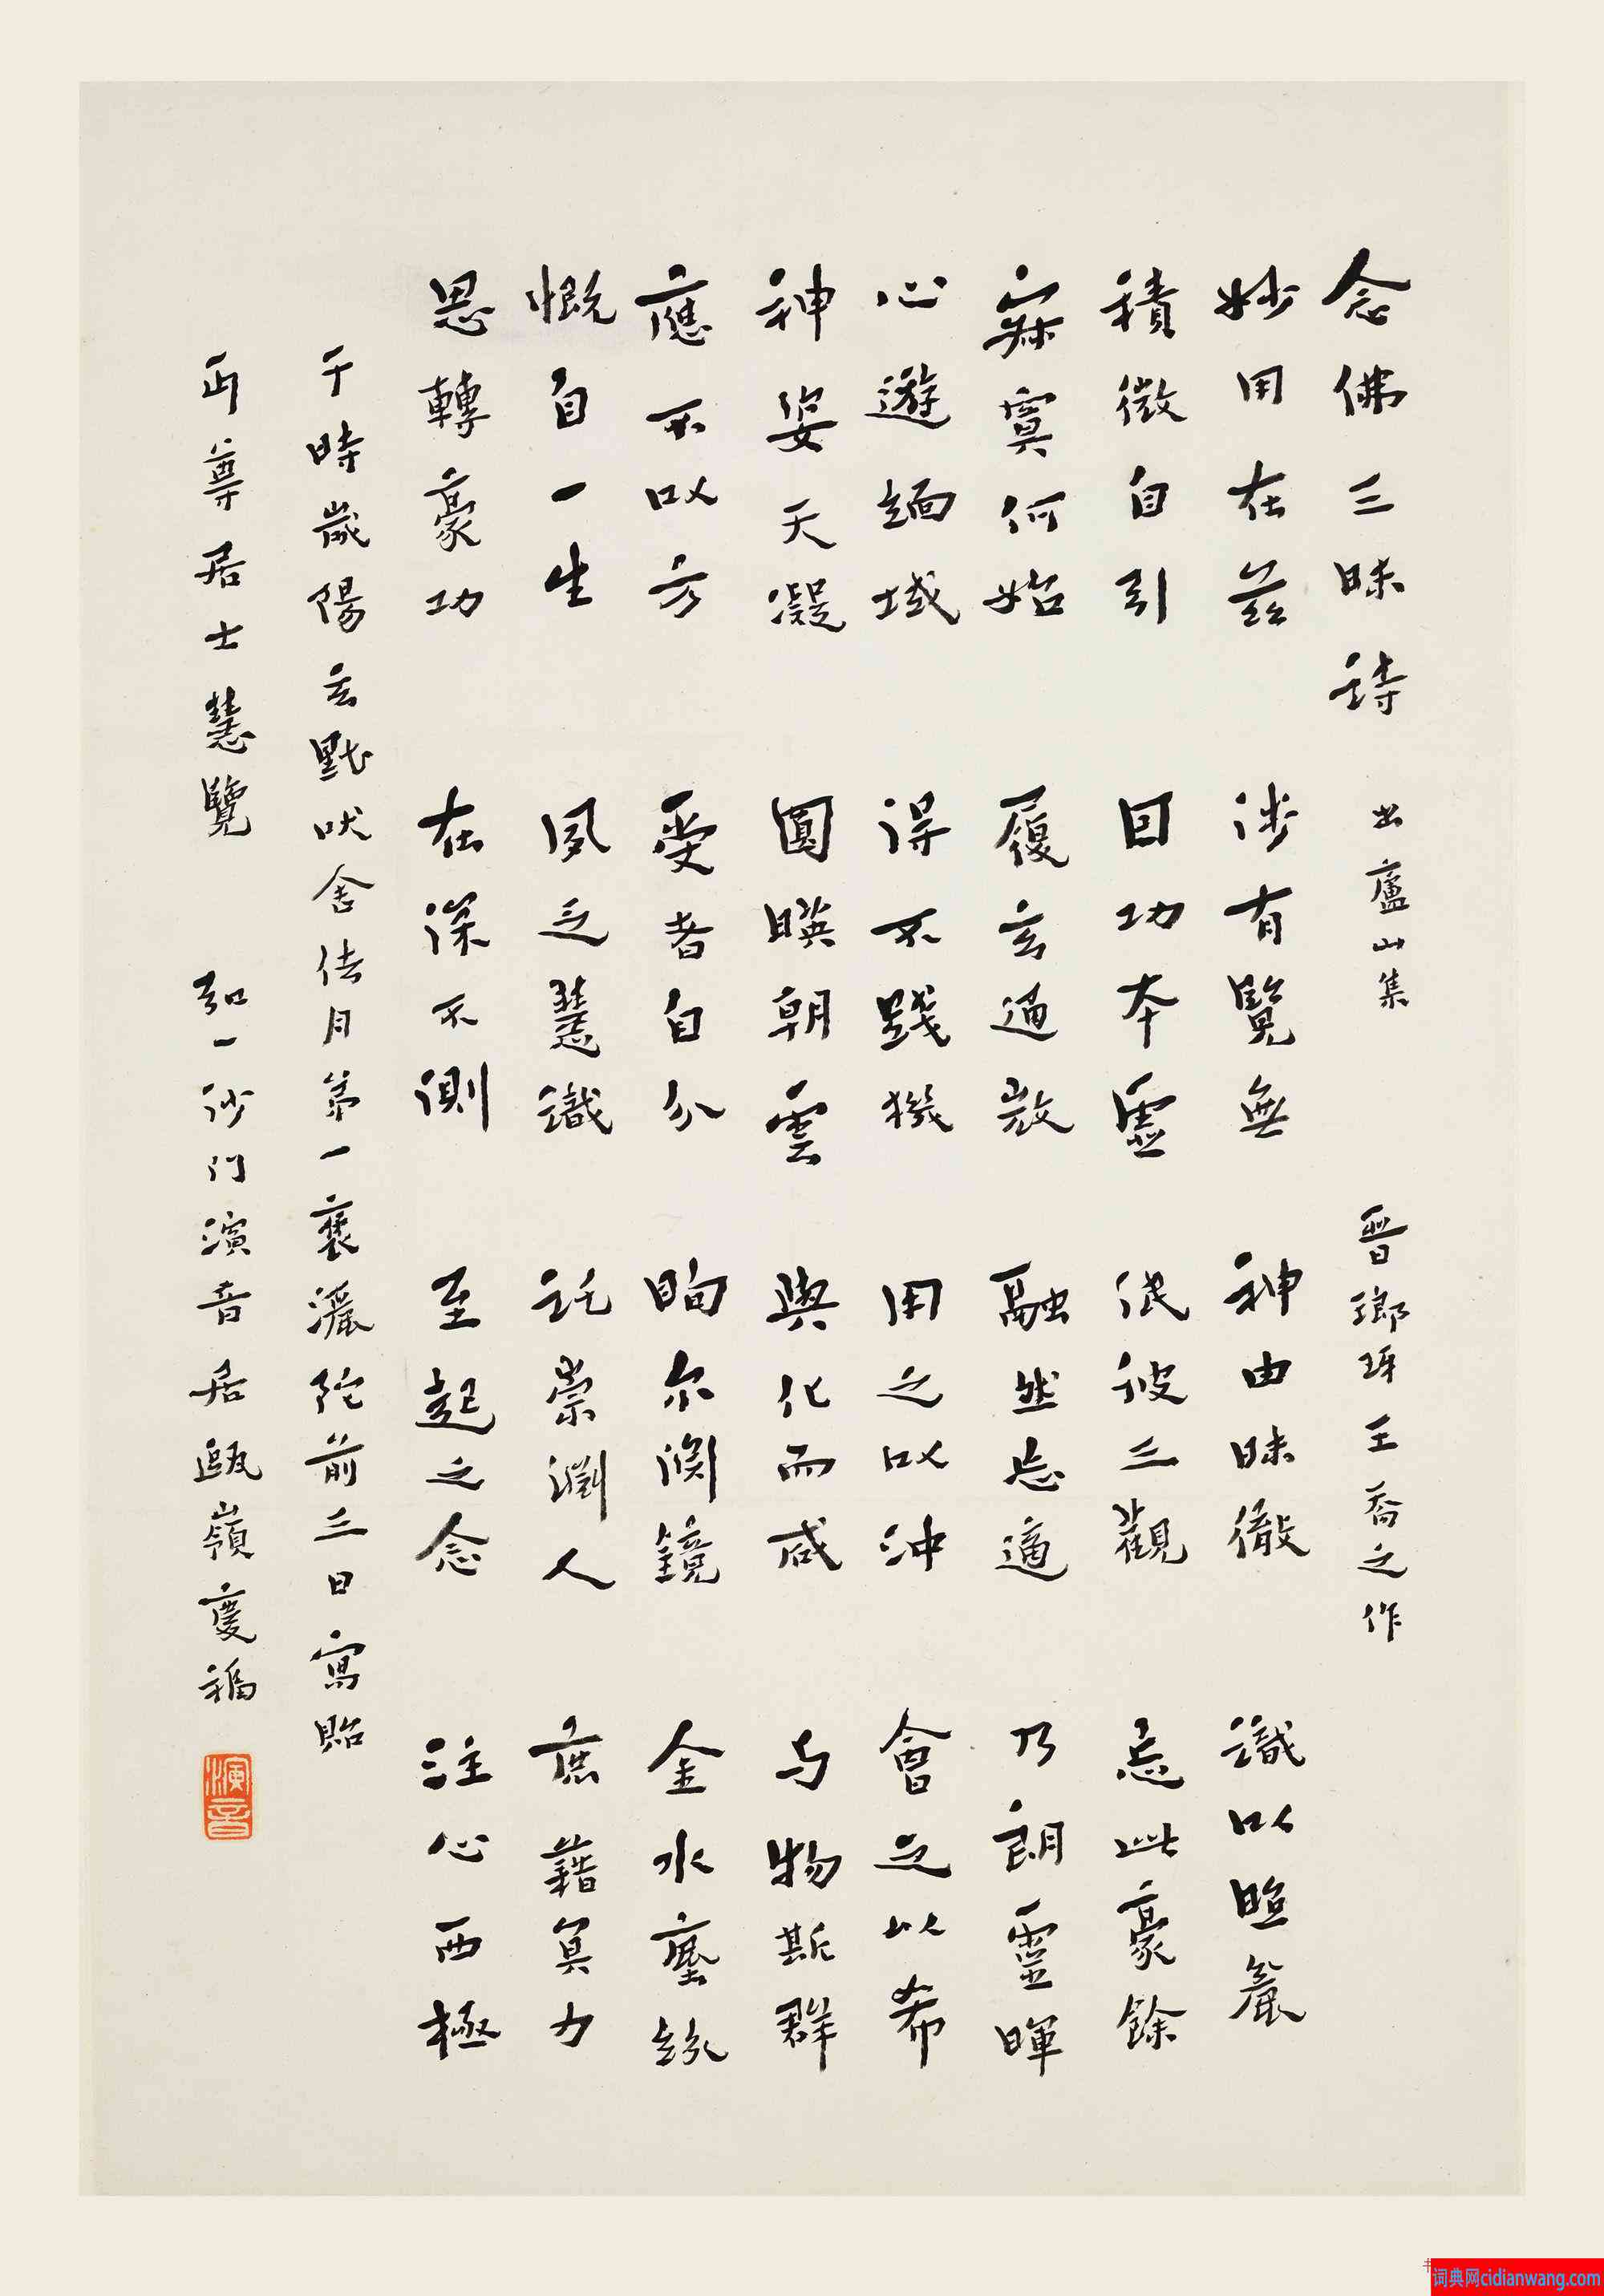 念佛三昧詩 出廬山集 晉瑯琊王喬之作
妙用在茲 涉有覽無 神由昧徹 識以照麤
積微自引 因功本虛 泯彼三觀 忘此豪餘
寂寞何始 履玄通微 融然忘適 乃朗靈暉
心遊緬域 得不踐機 用之以沖 會之以希
神姿天凝 圓映朝雲 與化而感 与物斯群
應不以方 受者自分 眴尔淵鏡 金水塵紛
慨自一生 夙乏慧識 託崇淵人 庶藉冥力
思轉豪功 在深不測 至起之念 注心西極
于時歲陽玄黓吠舍佉月第一褒灑陀前三日寫貽
丏尊居士慧覽 弘一沙门演音居甌嶺慶福
演音
词典网cidianwang.com